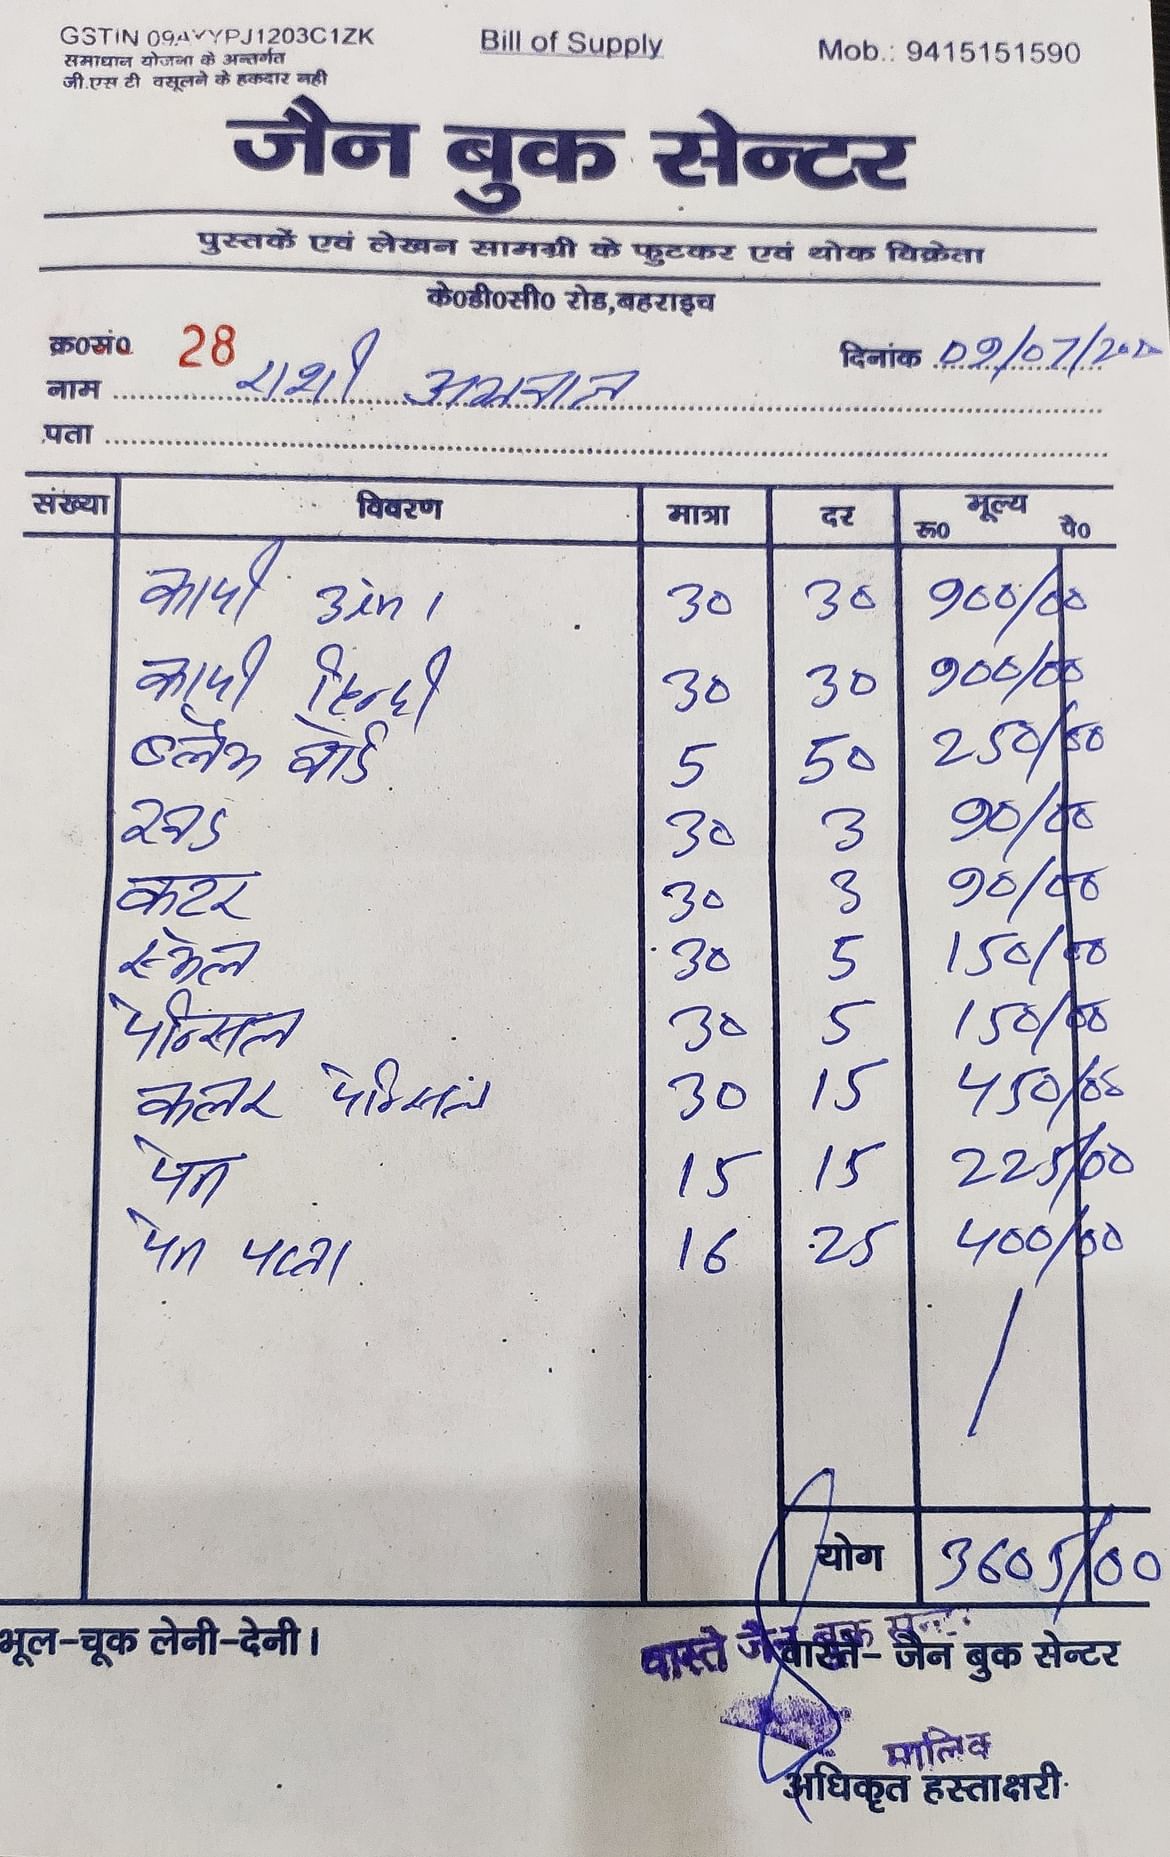 GSTIN 09AVYPJ1203C1ZK Bill of Supply Mob.: 9415151590
समाधान योजना के अन्तर्गत
जी.एस.टी वसूलने के हकदार नही
जैन बुक सेन्टर
पुस्तकें एवं लेखन सामग्री के फुटकर एवं थोक विक्रेता
के0डी0सी0 रोड,बहराइच
क्र0सं0 28 दिनांक 09/07/202
नाम राशी
पता
संख्या विवरण मात्रा दर मूल्य
रू0 पै0
कापी 3in1 30 30 900/00
कापी हिन्दी 30 30 900/00
ब्लैक बोर्ड 5 50 250/00
रबड 30 3 90/00
कटर 30 3 90/00
स्केल 30 5 150/00
पेन्सिल 30 5 150/00
कलर पेन्सिल 30 15 450/00
पेन 15 15 225/00
पेन पत्ता 16 25 400/00
योग 3605/00
भूल-चूक लेनी-देनी।
वास्ते जैन बुक सेन्टर
वास्ते- जैन बुक सेन्टर
मालिक
अधिकृत हस्ताक्षरी